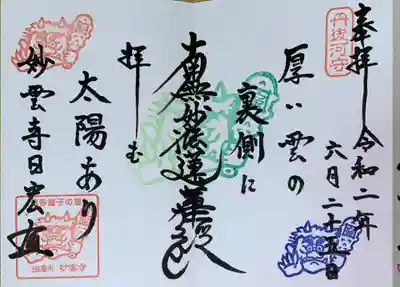 奉拝 令和二年
六月二十五日
厚い雲の
裏側に
南無妙法蓮華経
拝む
太陽あり
妙雲寺日宏
妙雲寺